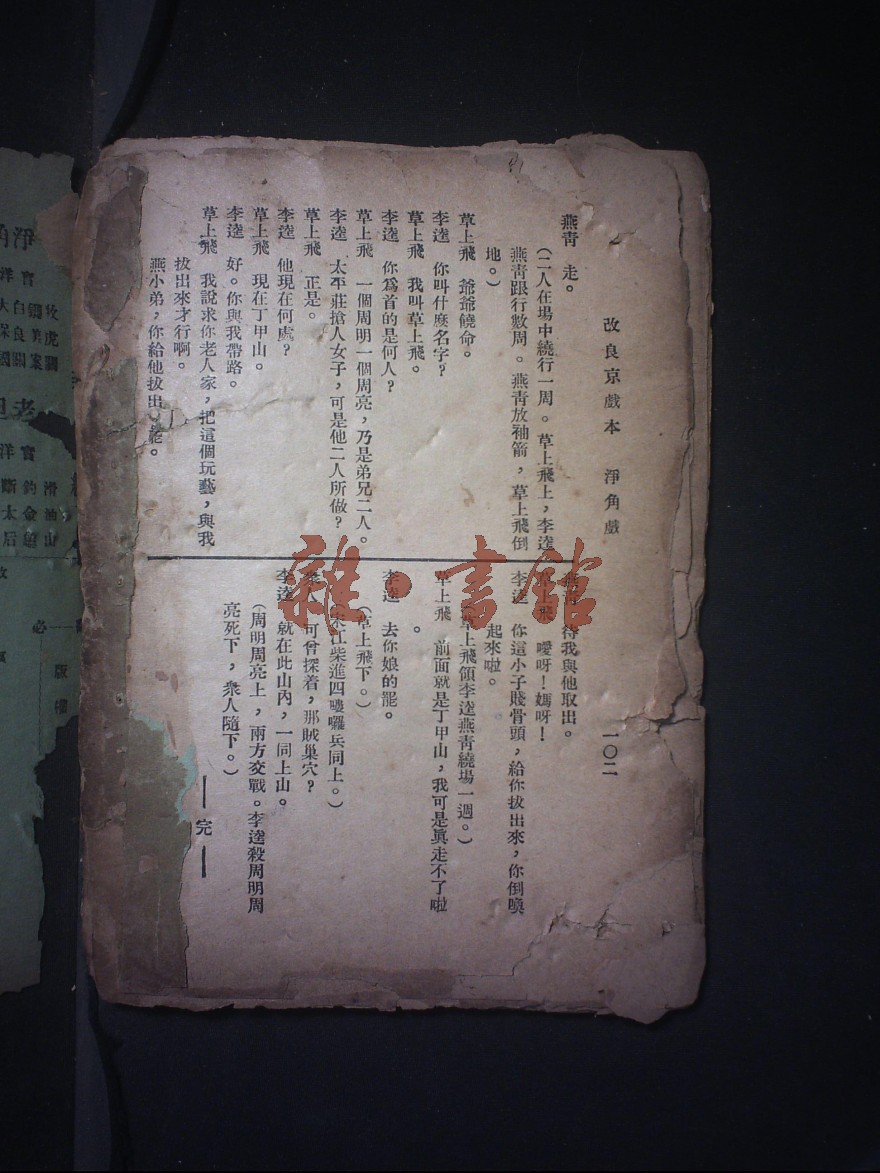 改良京戲本　淨角戲
一〇二
燕青　走。
（二人在場中繞行一周。草上飛上，李逵
燕青跟行數周。燕青放袖箭，草上飛倒
地。）
草上飛　爺爺饒命。
李逵　你叫什麽名字？
草上飛　我叫草上飛。
李逵　你爲首的是何人？
草上飛　一個周明一個周亮，乃是弟兄二人。
李逵　太平莊搶人女子，可是他二人所做？
草上飛　正是。
李逵　他現在何處？
草上飛　現在丁甲山。
李逵　好。你與我帶路。
草上飛　我說求你老人家，把這個玩藝，與我
拔出來才行啊。
燕小弟，你給他拔出罷。
燕青　待我與他取出。
草上飛　噯呀！媽呀！
李逵　你這小子賤骨頭，給你拔出來，你倒喚
起來啦。
（草上飛領李逵燕青繞場一週。）
草上飛　前面就是丁甲山，我可是眞走不了啦
。
李逵　去你娘的罷。
（草上飛下。）
宋江柴進四嘍囉兵同上。）
衆人　可曾探着，那賊巢穴？
李逵　就在此山內，一同上山。
（周明周亮上，兩方交戰。李逵殺周明周
亮死下，衆人隨下。）
——完——
雜·書館
淨角
老旦
版權
必